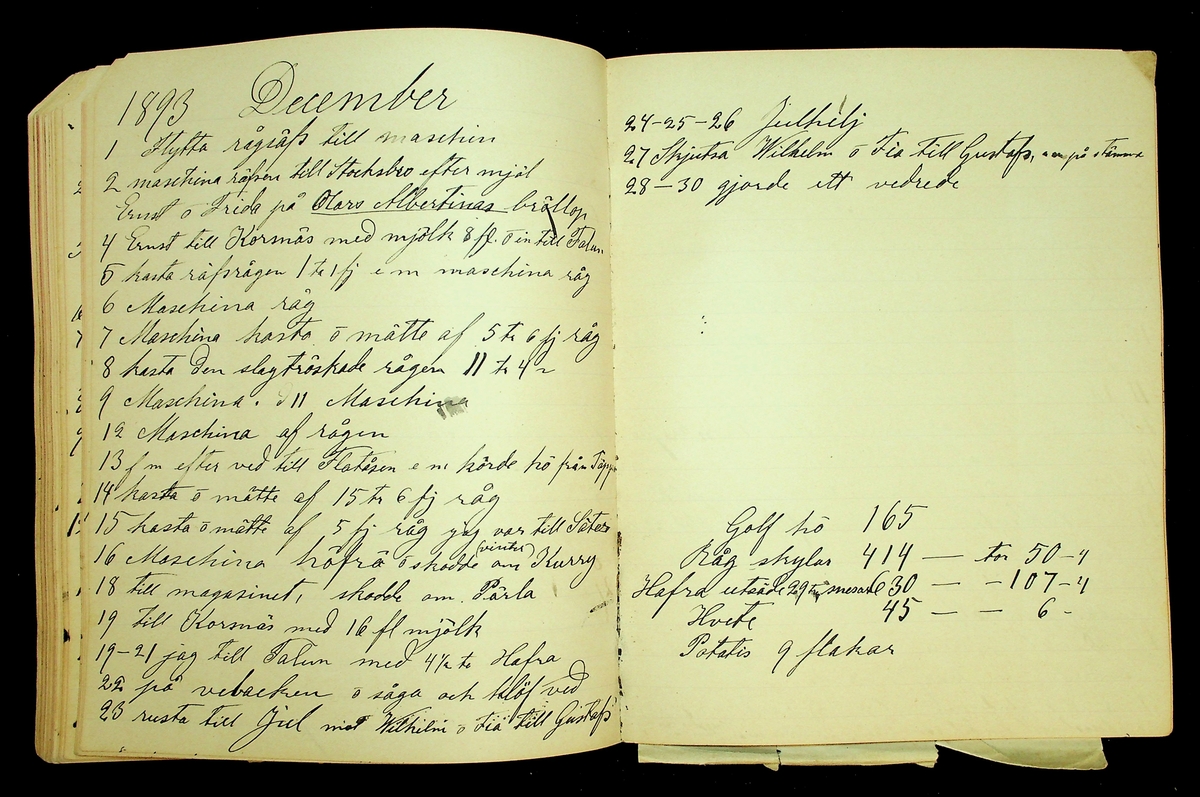 1893 December
1 Flytta rågsäfs till maschin
2 maschina räfsen till Stocksbro efter mjöl
Ernst o Frida på Olars Albertinas bröllop
4 Ernst till Korsnäs med mjölk 8 fl. o in till Falun
5 kasta räfsrågen 1 tr 1 fj e m maschina råg
6 Maschina råg
7 Maschina kasta o mätte af 5 tr 6 fj råg
8 kasta den slagtröskade rågen 11 tr 4
9 Maschina. 11 Maschina
12 Maschina af rågen
13 f m efter ved till Flatåsen e m körde hö från
14 kasta o mätte af 15 tr 6 fj råg
15 kasta o mätte af 5 fj råg jag var till Säter
(vinter)
16 Maschina höfrö o skodde om Kurry
18 till magasinet, skodde om Pärla
19 till Korsnäs med 16 fl mjölk
19-21 jag till Falun med 4½ tr Hafra
22 på vebacken o såga och klöf ved
23 rusta till Jul met Wilhelm o Fia till Gustafs
24-25-26 Julhelj
27 Skjutsa Wilhelm o Fia till Gustafs, på stämma
28-30 gjorde ett vedrede
Golf hö 165
Råg skylar 414 — tor 50-4
Hafra utsäde 29 tr 30 — - 107-4
Hvete 45 — - 6 -
Potatis 9 flakar